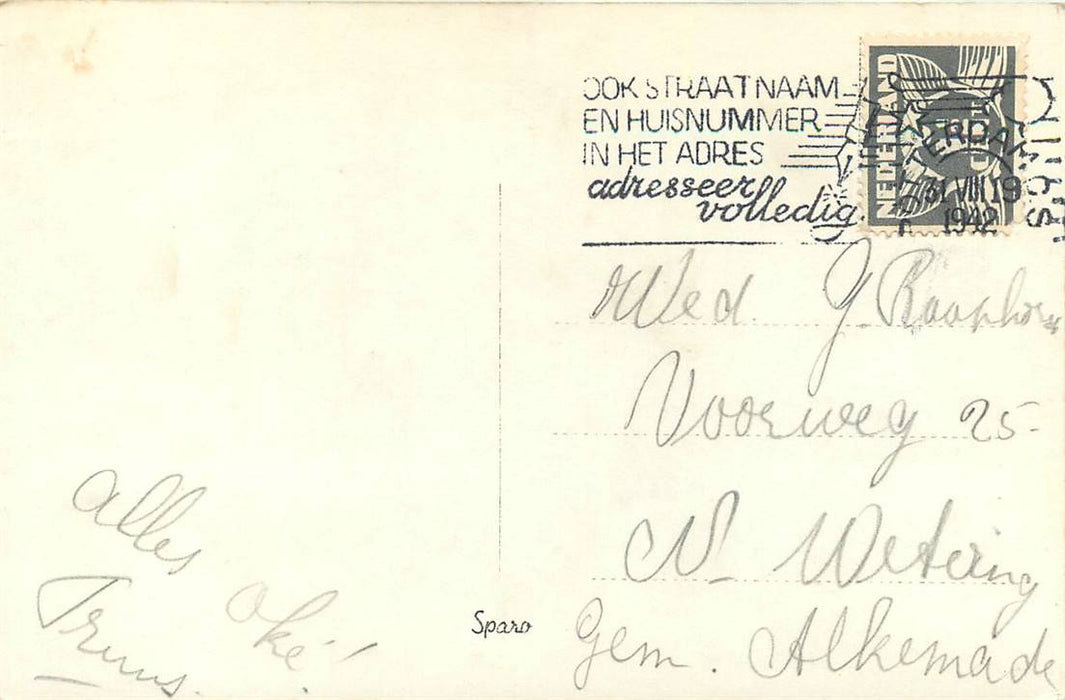 OOK STRAATNAAM
EN HUISNUMMER
IN HET ADRES
adresseer
volledig
NEDERLAND
AMSTERDAM C.S
31 VIII 19
1942
Wed G. Raaphorst
Voorweg 25-
N- Wetering
Gem. Alkemade
Alles
oké!
Truus.
Sparo